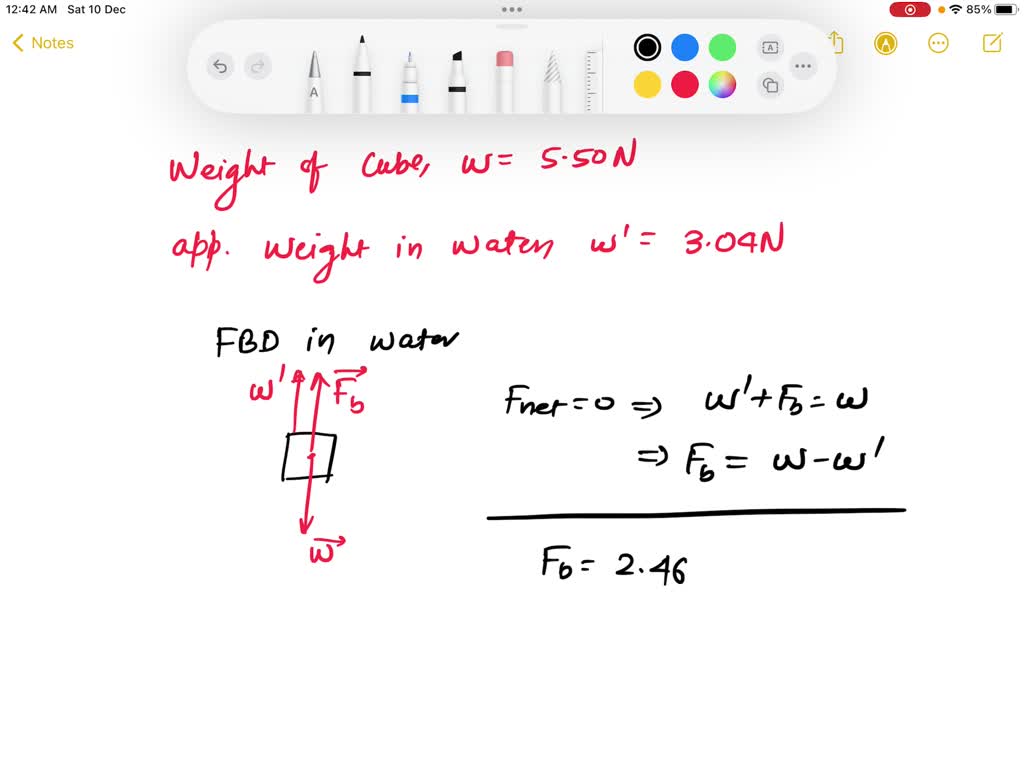 12:42 AM Sat 10 Dec
85%
Notes
A
A
A
Weight of Cube, w = 5.50N
app. Weight in water, w' = 3.04N
FBD in water
w' F_b
w
Fnet = 0 ⇒ w' + F_b = w
⇒ F_b = w - w'
F_b = 2.46